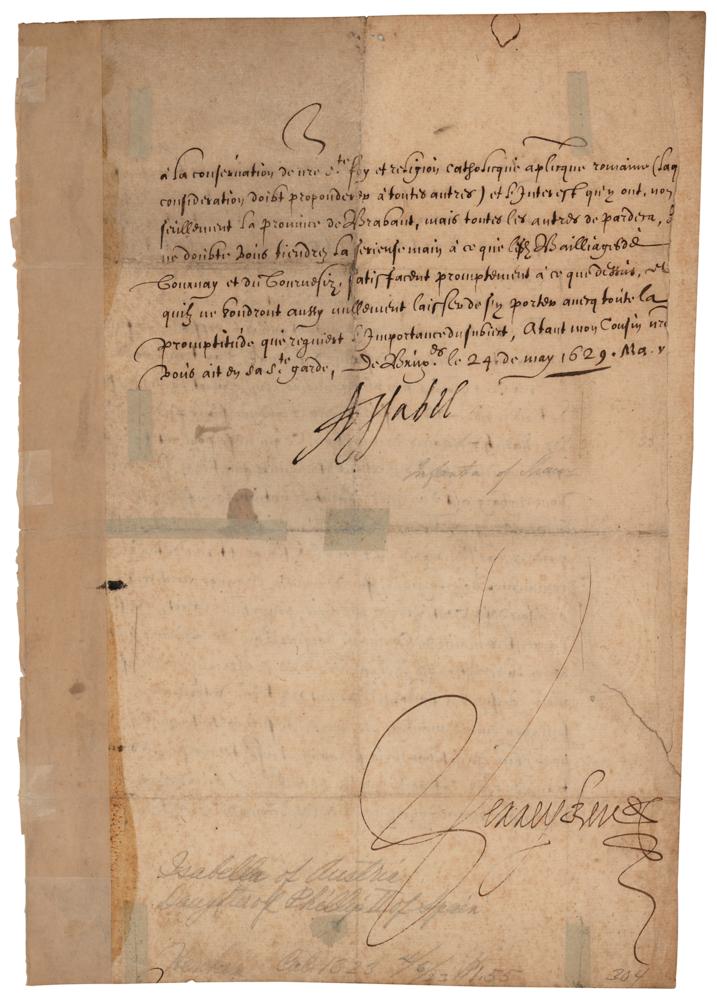 à la conseruation de nre s.te foy et religion catholicque aplicque romaine (laq
consideration doibt preponderer à toutes autres) et l'Interest qu'y ont, non
seullement la prouince de Brabant, mais toutes les autres de pardeca,
ne doibte vous tiendrez la serieuse main à ce que Bailliages de
Tournay et du Tournesiz, satisfacent promptement à ce que dessus, et
quilz ne vondront aussy nullement laisser de s'y porter auecq toute la
promptitude que requiert l'Importance du subiect, Atant mon Cousin nre
vous ait en sa s.te garde, De Brux.es le 24 de may 1629. Ma. v
A Isabel
Infanta of
Isabella of Austria
Daughter of Phillip II of Spain
204